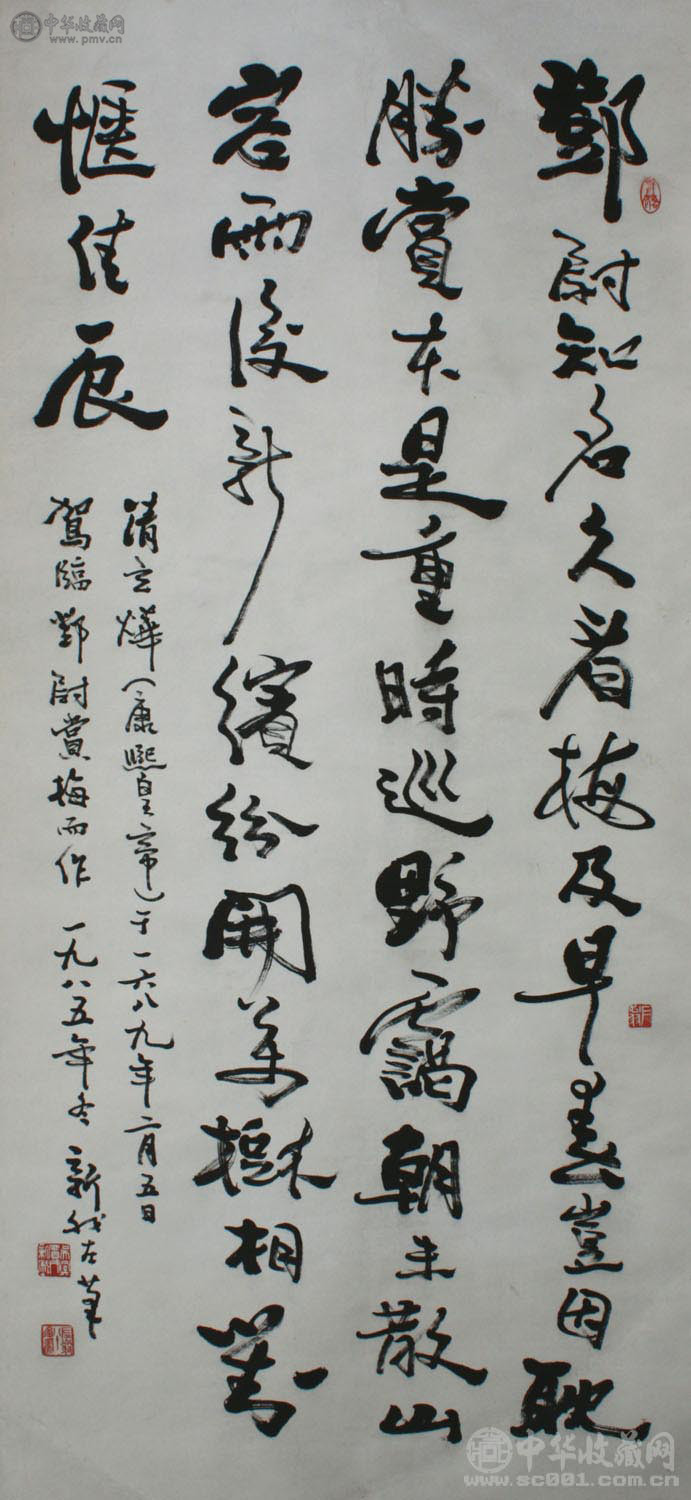 鄧尉知名久看梅及早春豈因耽
勝賞本是重時巡野靄朝未散山
容雨後新繽紛開萬樹相對
愜佳辰
清玄燁（康熙皇帝）于一六八九年二月五日
駕臨鄧尉賞梅而作 一九八五年冬 新我左筆
中华收藏网
www.pmv.cn
中华收藏网
www.sc001.com.cn